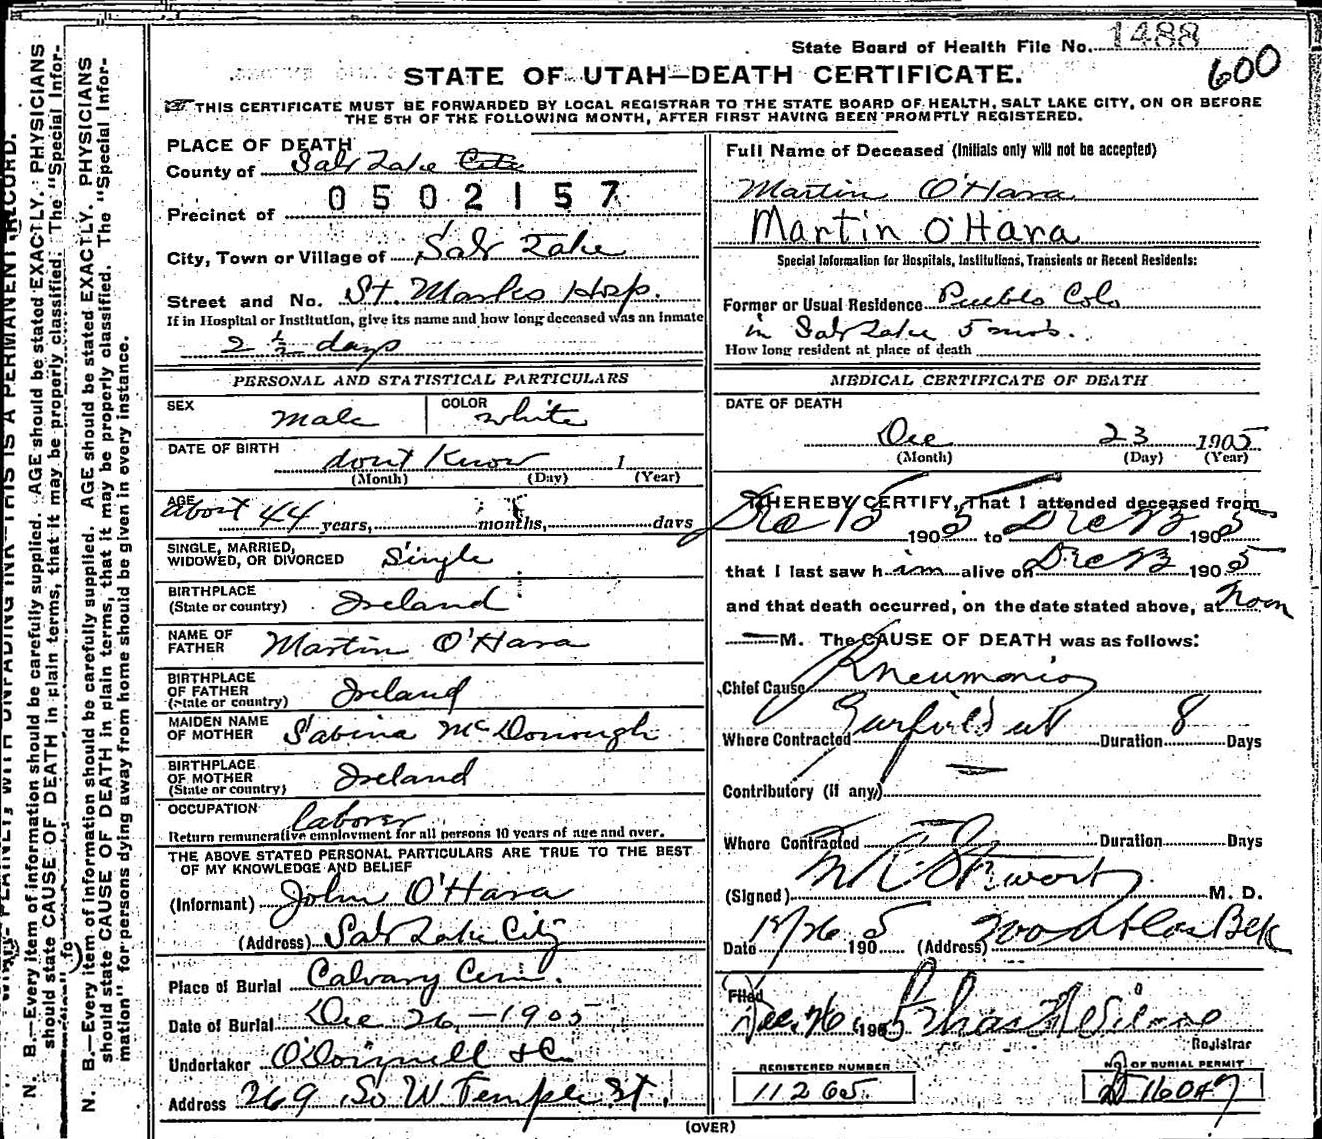 State Board of Health File No. 1488
600
STATE OF UTAH—DEATH CERTIFICATE.
THIS CERTIFICATE MUST BE FORWARDED BY LOCAL REGISTRAR TO THE STATE BOARD OF HEALTH, SALT LAKE CITY, ON OR BEFORE
THE 5TH OF THE FOLLOWING MONTH, AFTER FIRST HAVING BEEN PROMPTLY REGISTERED.
PLACE OF DEATH
County of Salt Lake City
Precinct of 0502157
City, Town or Village of Salt Lake
Street and No. St. Marks Hosp.
If in Hospital or Institution, give its name and how long deceased was an inmate
2 1/2 days
PERSONAL AND STATISTICAL PARTICULARS
SEX Male COLOR White
DATE OF BIRTH dont Know 1
(Month) (Day) (Year)
AGE about 44 years, months, days
SINGLE, MARRIED,
WIDOWED, OR DIVORCED Single
BIRTHPLACE
(State or country) Ireland
NAME OF
FATHER Martin O'Hara
BIRTHPLACE
OF FATHER
(State or country) Ireland
MAIDEN NAME
OF MOTHER Sabina McDonough
BIRTHPLACE
OF MOTHER
(State or country) Ireland
OCCUPATION laborer
Return remunerative employment for all persons 10 years of age and over.
THE ABOVE STATED PERSONAL PARTICULARS ARE TRUE TO THE BEST
OF MY KNOWLEDGE AND BELIEF
(Informant) John O'Hara
(Address) Salt Lake City
Place of Burial Calvary Cem.
Date of Burial Dec 26 - 1905
Undertaker O'Donnell & Co
Address 269 So W Temple St.
Full Name of Deceased (Initials only will not be accepted)
Martin O'Hara
Martin O'Hara
Special Information for Hospitals, Institutions, Transients or Recent Residents:
Former or Usual Residence Pueblo Colo
in Salt Lake 5 mos.
How long resident at place of death
MEDICAL CERTIFICATE OF DEATH
DATE OF DEATH
Dec 23 1905
(Month) (Day) (Year)
I HEREBY CERTIFY, That I attended deceased from
Dec 1905 to Dec 23 1905
that I last saw him alive on Dec 23 1905
and that death occurred, on the date stated above, at Noon
M. The CAUSE OF DEATH was as follows:
Chief Cause Pneumonia
Where Contracted Garfield ut Duration 8 Days
Contributory (if any)
Where Contracted Duration Days
(Signed) Stewart M. D.
Date 12/26 1905 (Address)
Filed
Dec. 26, 1905 Chas
Registrar
REGISTERED NUMBER
11265
NO OF BURIAL PERMIT
16047
(OVER)
N. B.—Every item of information should be carefully supplied. AGE should be stated EXACTLY. PHYSICIANS
should state CAUSE OF DEATH in plain terms, that it may be properly classified. The "Special Infor-
N. B.—Every item of information should be carefully supplied. AGE should be stated EXACTLY. PHYSICIANS
should state CAUSE OF DEATH in plain terms, that it may be properly classified. The "Special Infor-
mation" for persons dying away from home should be given in every instance.